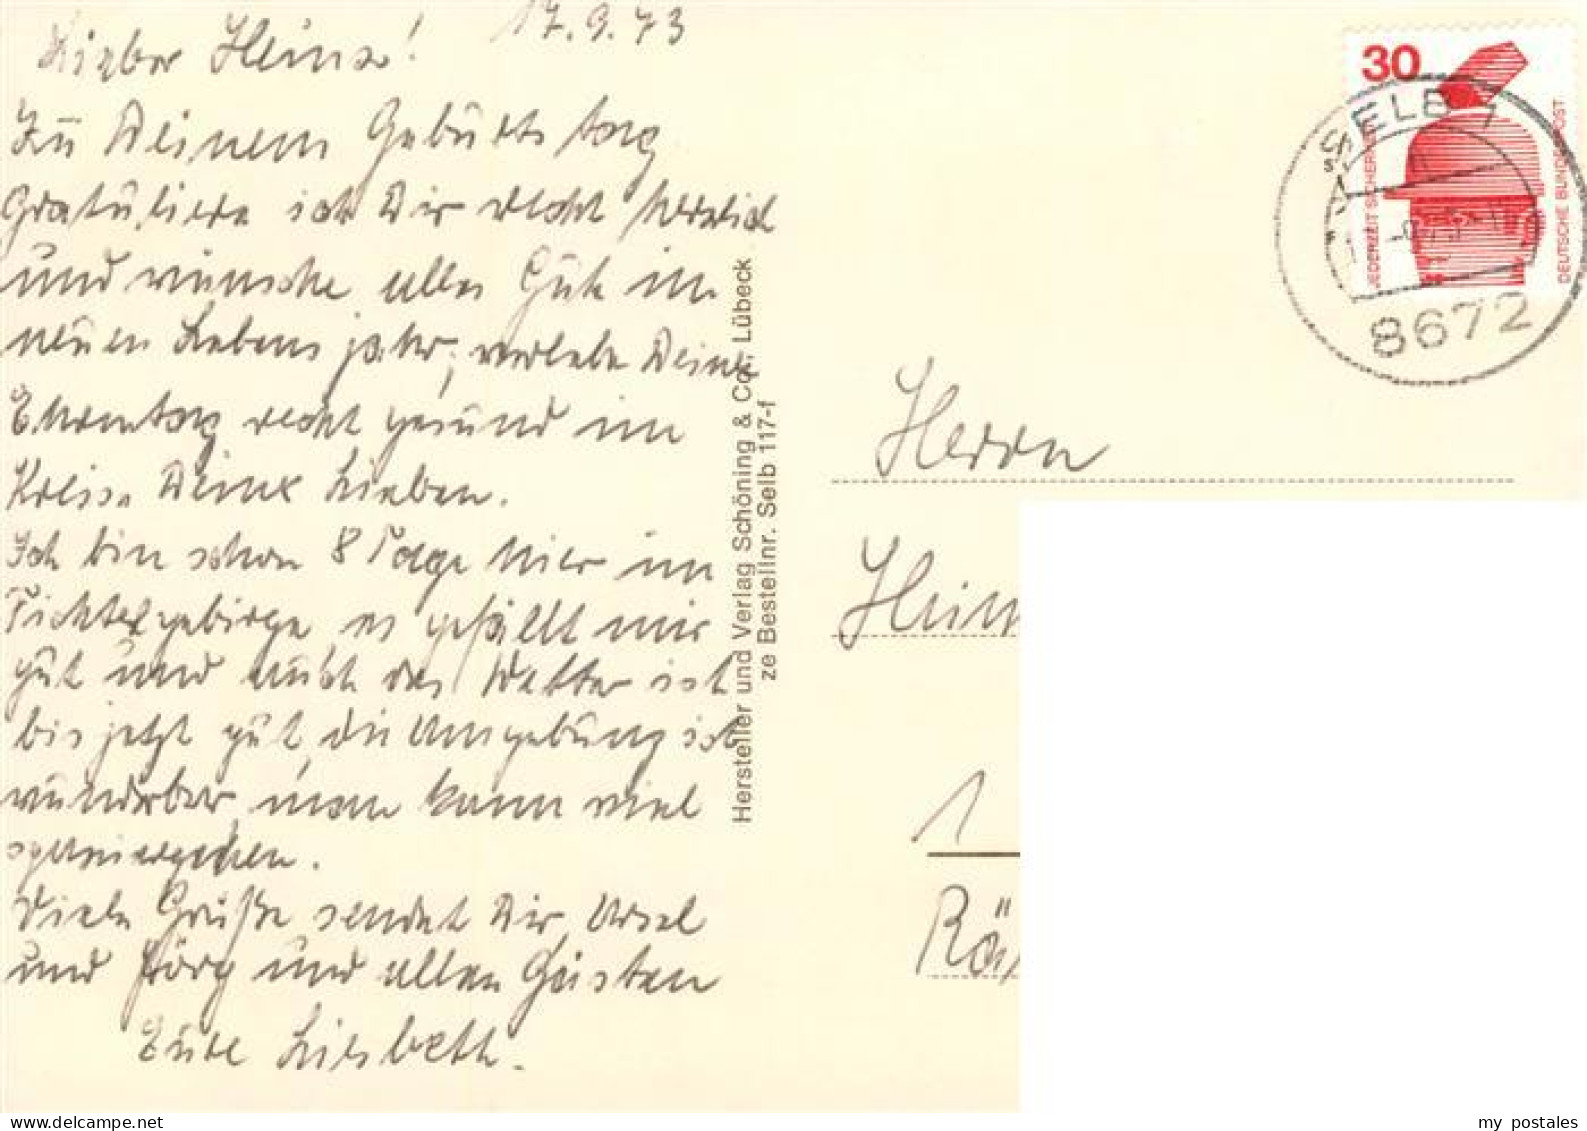 17.9.73
Lieber Heinz!
Zu Deinem Geburtstag
Gratuliere ich Dir recht herzlich
und wünsche alles Gute im
neuen Lebensjahr, verlebe Deinen
Ehrentag recht gesund im
Kreise Deine Lieben.
Ich bin schon 8 Tage hier im
Fichtelgebirge es gefällt mir
gut und auch das Wetter ist
bis jetzt gut, die Umgebung ist
wunderbar, man kann viel
spazierengehen.
Viele Grüße sendet Dir, Ursel
und Jörg und allen Gästen
Eure Liesbeth.
Hersteller und Verlag Schöning & Co., Lübeck
ze Bestellnr. Selb 117-f
30
JEDERZEIT SICHERHEIT
DEUTSCHE BUNDESPOST
SELB 1
8672
Herrn
1
my postales